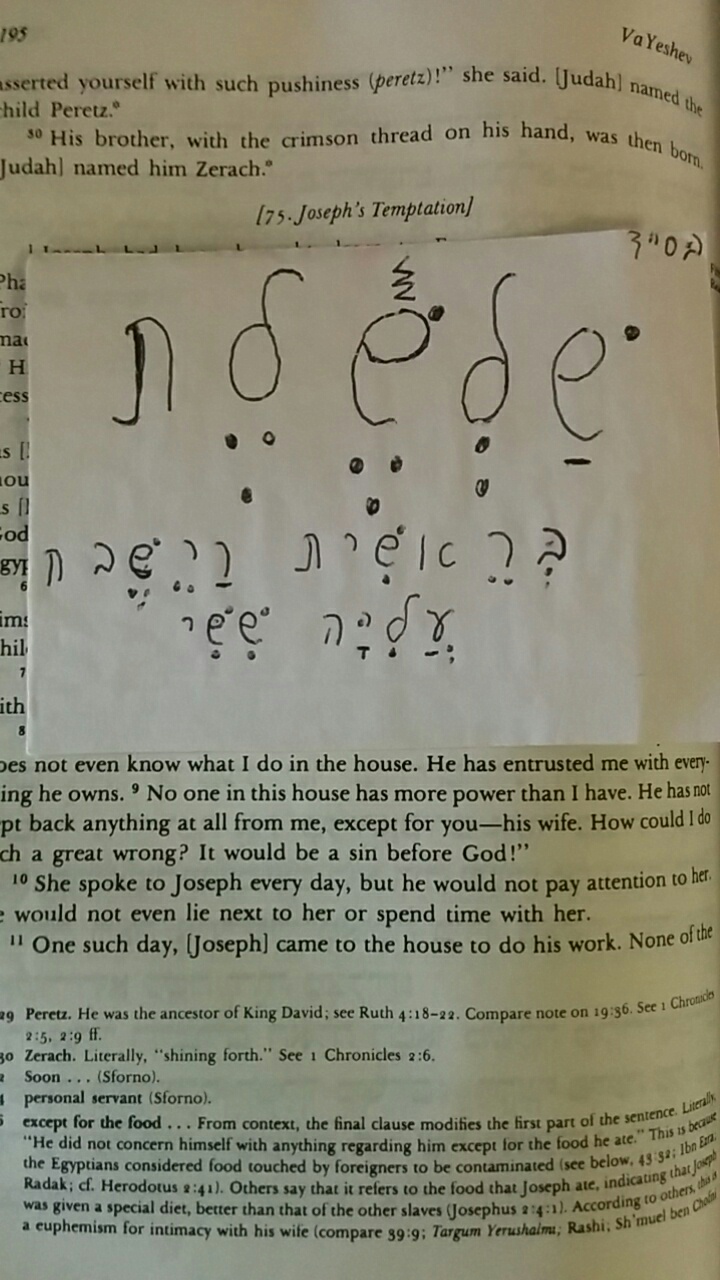 195
VaYeshev
asserted yourself with such pushiness (peretz)!” she said. [Judah] named the
child Peretz.°
30 His brother, with the crimson thread on his hand, was then born.
[Judah] named him Zerach.°
[75. Joseph's Temptation]
בס״ד
שַׁלְשֶׁ֓לֶת
בְּרֵאשִׁית וַיֵּשֶׁב
עֲלִיָּה שִׁשִּׁי
6
7
8
does not even know what I do in the house. He has entrusted me with every-
thing he owns. 9 No one in this house has more power than I have. He has not
kept back anything at all from me, except for you—his wife. How could I do
such a great wrong? It would be a sin before God!”
10 She spoke to Joseph every day, but he would not pay attention to her.
He would not even lie next to her or spend time with her.
11 One such day, [Joseph] came to the house to do his work. None of the
29 Peretz. He was the ancestor of King David; see Ruth 4:18–22. Compare note on 19:36. See 1 Chronicles
2:5, 2:9 ff.
30 Zerach. Literally, “shining forth.” See 1 Chronicles 2:6.
Soon . . . (Sforno).
personal servant (Sforno).
except for the food . . . From context, the final clause modifies the first part of the sentence. Literally,
“He did not concern himself with anything regarding him except for the food he ate.” This is because
the Egyptians considered food touched by foreigners to be contaminated (see below, 43:32; Ibn Ezra;
Radak; cf. Herodotus 2:41). Others say that it refers to the food that Joseph ate, indicating that Joseph
was given a special diet, better than that of the other slaves (Josephus 2:4:1). According to others, this is
a euphemism for intimacy with his wife (compare 39:9; Targum Yerushalmi; Rashi; Sh'muel ben Chofni